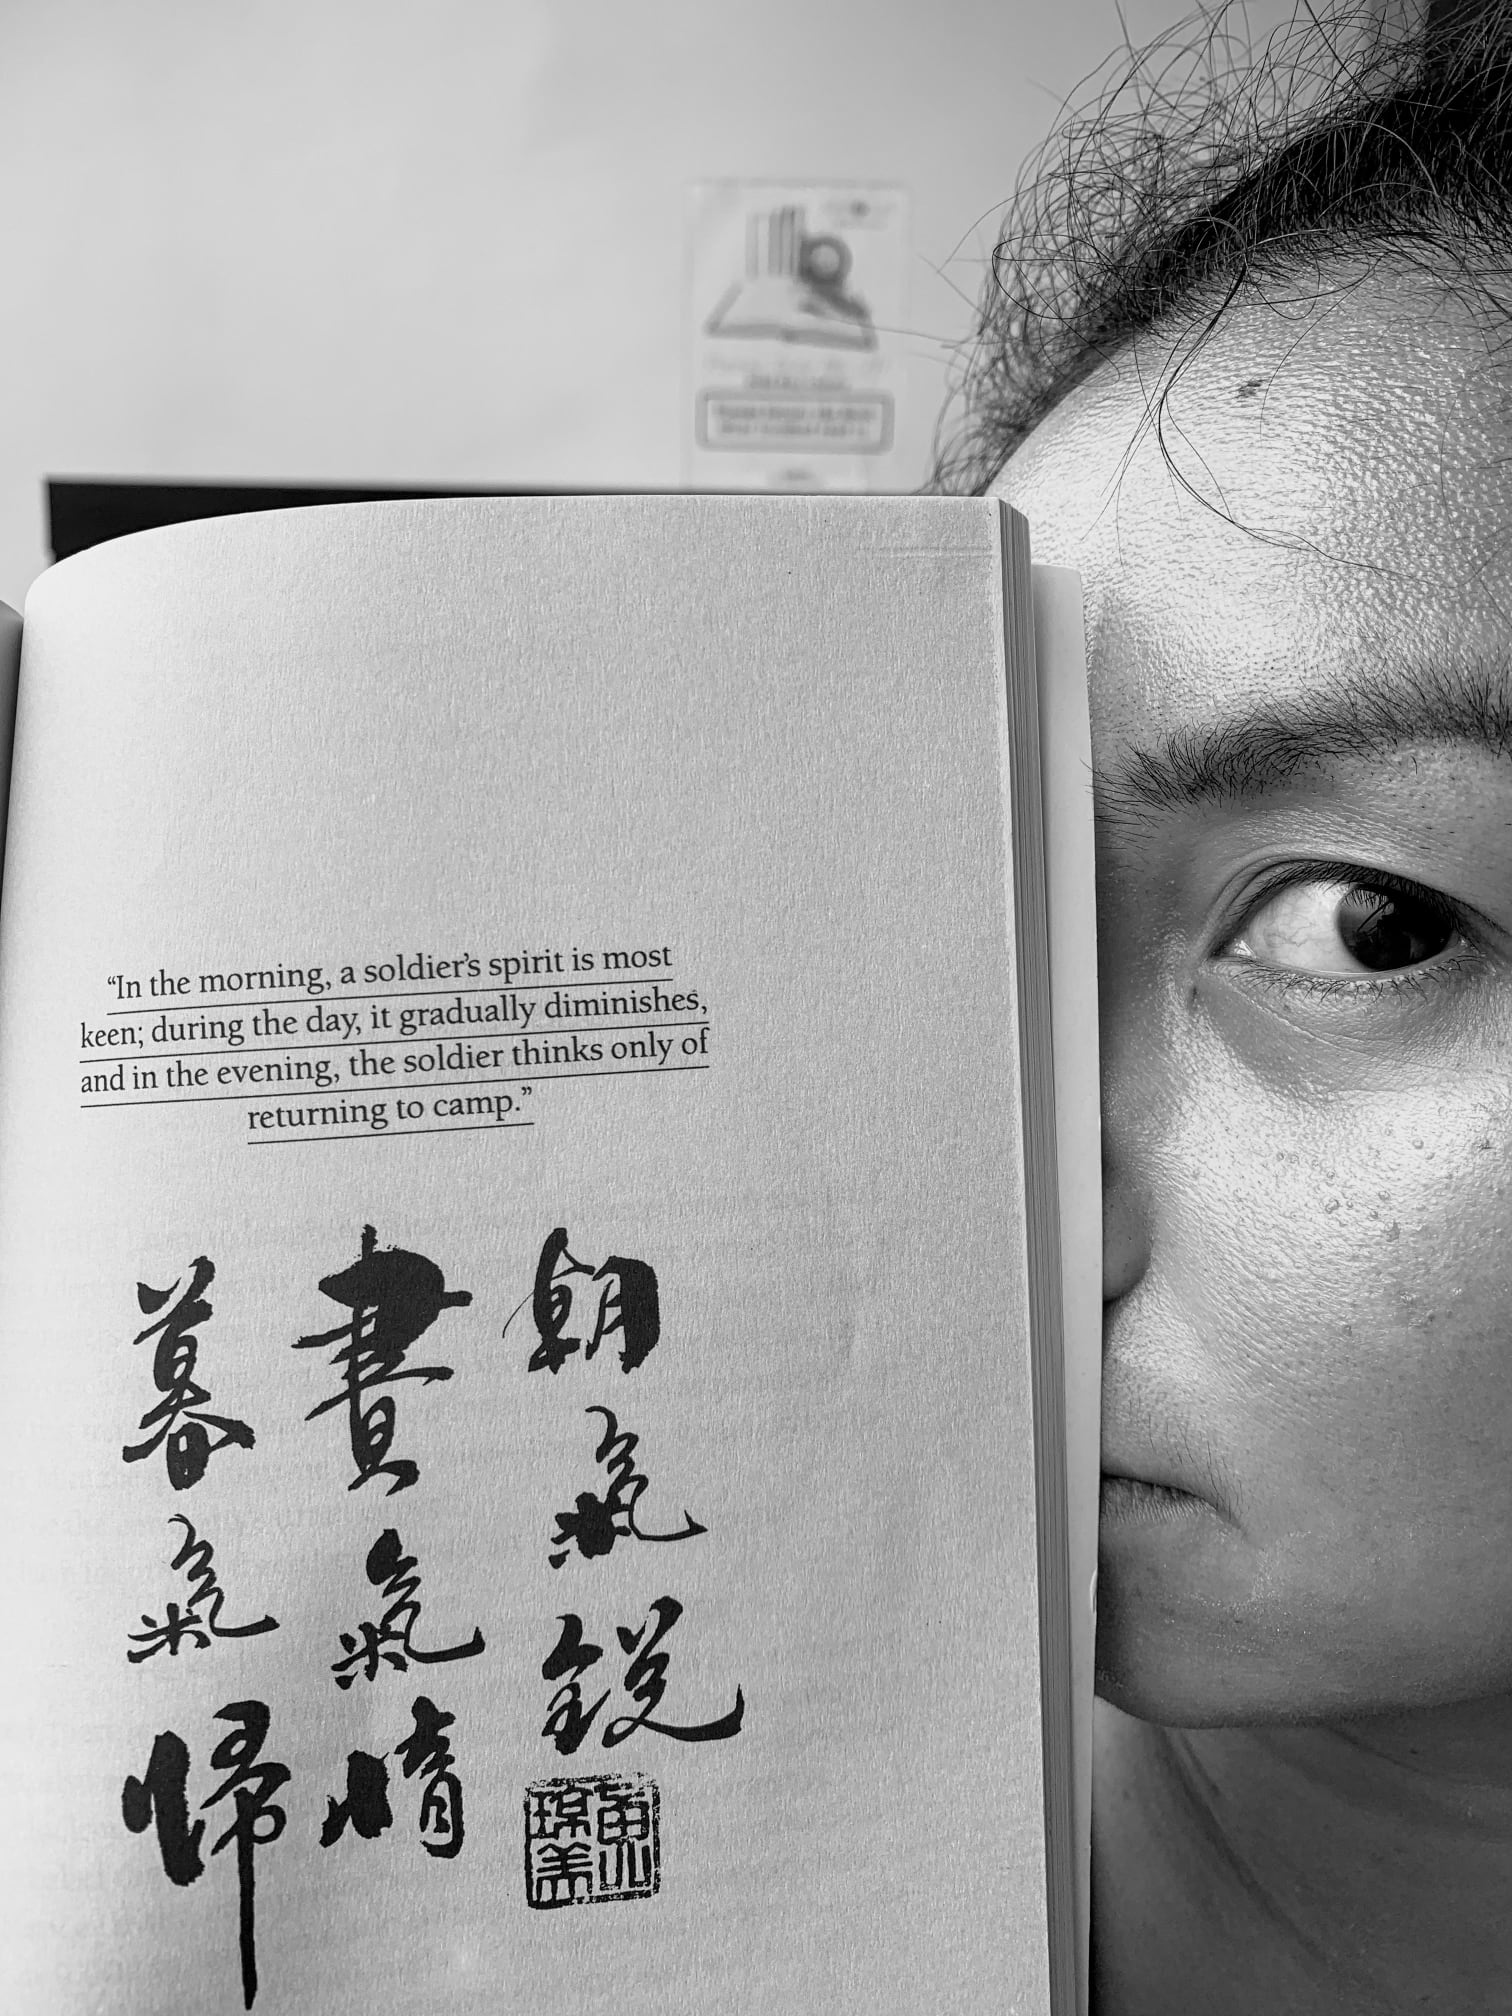 “In the morning, a soldier’s spirit is most
keen; during the day, it gradually diminishes,
and in the evening, the soldier thinks only of
returning to camp.”
朝氣銳
晝氣惰
暮氣歸